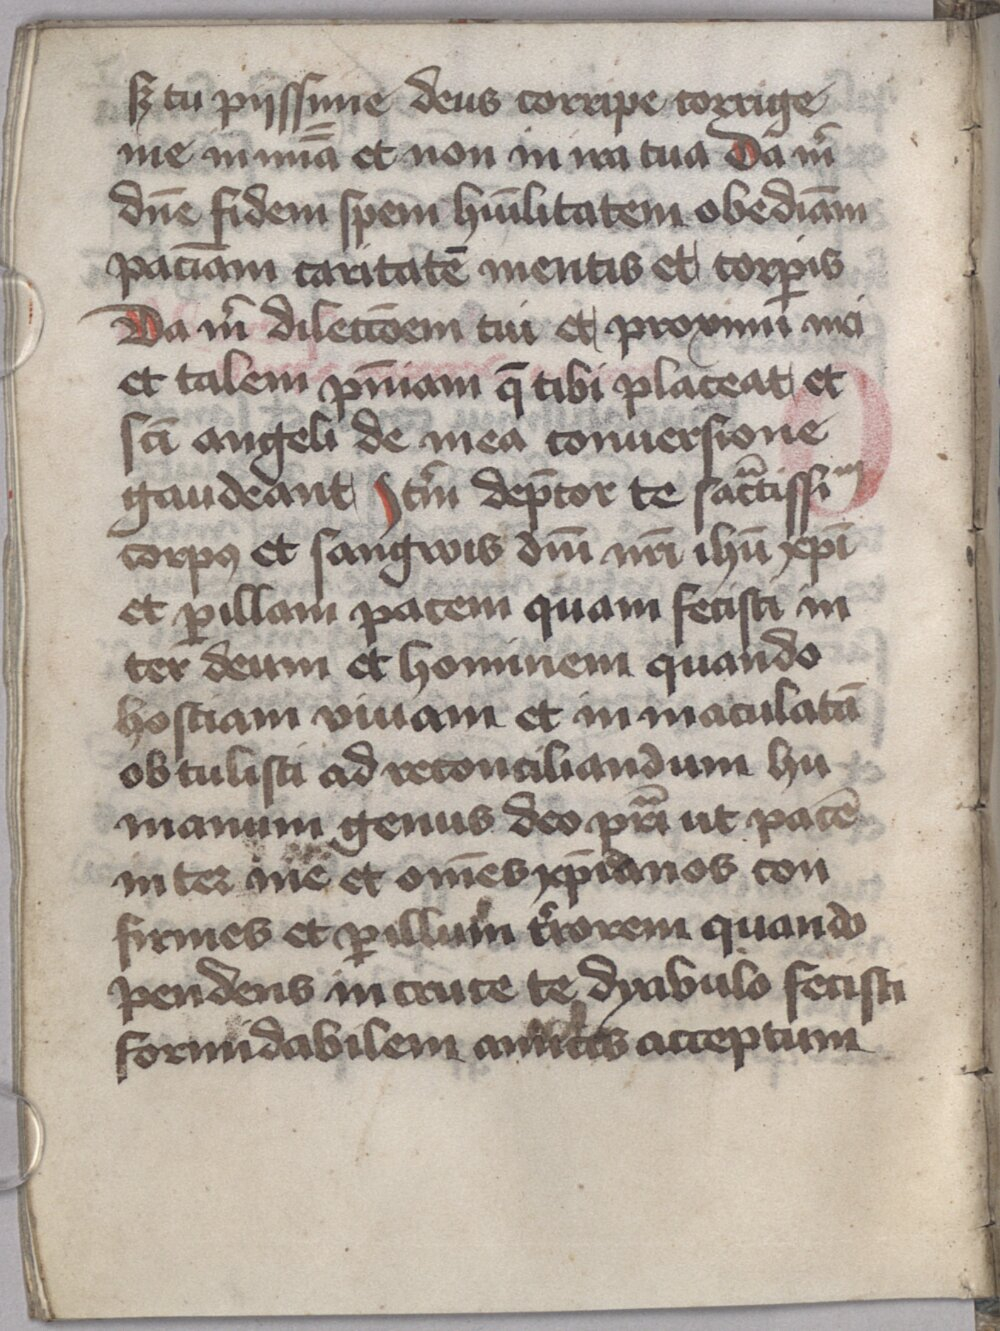 sz tu pijssime deus corripe corrige
me in mīā et non in ira tua Da m̄
dn̄e fidem spem hūilitatem obediām
paciām caritatē mentis et corꝑis
Da m̄ dilecc̄oem tui et proximi mei
et talem pn̄iam q̄ tibi placeat et
sc̄i angeli de mea conuersione
gaudeant Itm̄ dep̄cor te sac̄tissiᵐ
corpꝰ et sangwis dn̄i nr̄i ihū xp̄i
et ꝑ illam pacem quam fecisti in
ter deum et hominem quando
hostiam viuam et in maculatā
obtulisti ad reconciliandum hu
manum genus deo pr̄i ut pacē
inter me et om̄es xp̄ianos con
firmes et ꝑ illum t̄rorem quando
pendens in cruce te dyabulo fecisti
formidabilem amicis acceptum